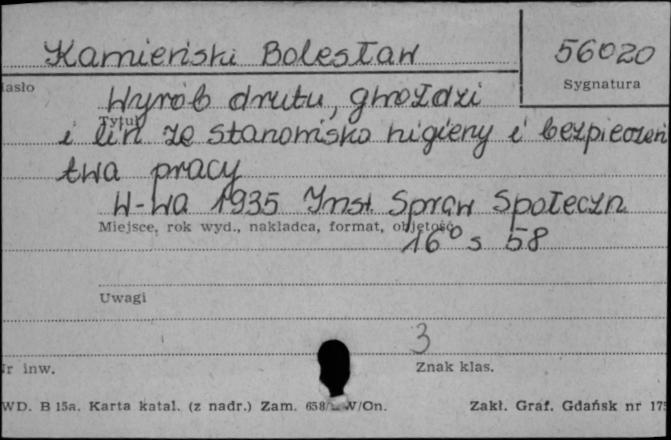 Kamieński Bolesław 56020
Hasło Sygnatura
Wyrób drutu, gwoździ
Tytuł
i lin ze stanowiska higieny i bezpieczeń
twa pracy
W-wa 1935 Inst. Spraw Społeczn
Miejsce, rok wyd., nakładca, format, objętość
16° s 58
Uwagi
3
Nr inw. Znak klas.
WD. B 15a. Karta katal. (z nadr.) Zam. W/On. Zakł. Graf. Gdańsk nr